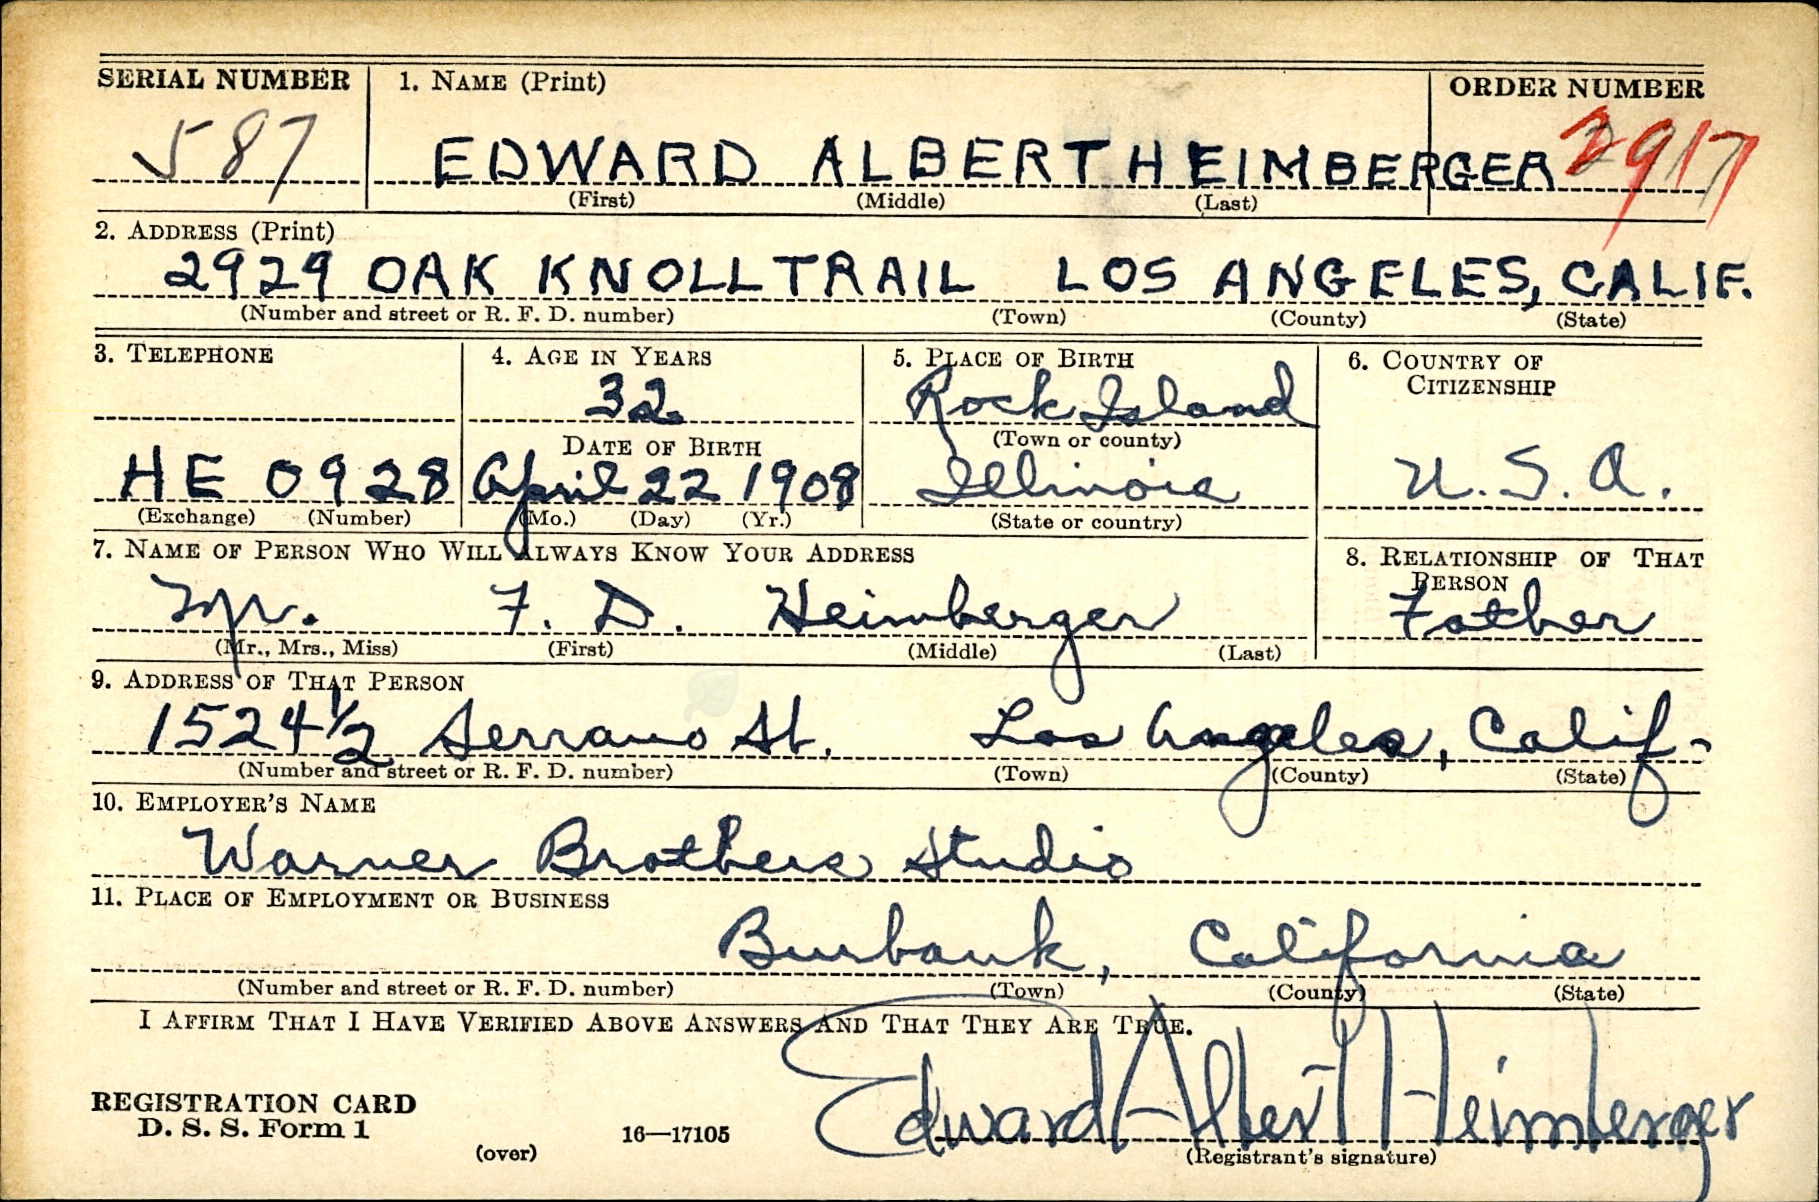 SERIAL NUMBER 1. NAME (Print) ORDER NUMBER
587 EDWARD ALBERT HEIMBERGER 2917
(First) (Middle) (Last)
2. ADDRESS (Print)
2929 OAK KNOLL TRAIL LOS ANGELES, CALIF.
(Number and street or R. F. D. number) (Town) (County) (State)
3. TELEPHONE 4. AGE IN YEARS 5. PLACE OF BIRTH 6. COUNTRY OF CITIZENSHIP
32 Rock Island
(Town or county)
DATE OF BIRTH
HE 0928 April 22 1908 Illinois U. S. A.
(Exchange) (Number) (Mo.) (Day) (Yr.) (State or country)
7. NAME OF PERSON WHO WILL ALWAYS KNOW YOUR ADDRESS 8. RELATIONSHIP OF THAT PERSON
Mr. F. D. Heimberger Father
(Mr., Mrs., Miss) (First) (Middle) (Last)
9. ADDRESS OF THAT PERSON
1524 1/2 Serrano St. Los Angeles, Calif-
(Number and street or R. F. D. number) (Town) (County) (State)
10. EMPLOYER'S NAME
Warner Brothers Studio
11. PLACE OF EMPLOYMENT OR BUSINESS
Burbank, California
(Number and street or R. F. D. number) (Town) (County) (State)
I AFFIRM THAT I HAVE VERIFIED ABOVE ANSWERS AND THAT THEY ARE TRUE.
Edward Albert Heimberger
REGISTRATION CARD
D. S. S. Form 1 (over) 16—17105 (Registrant's signature)